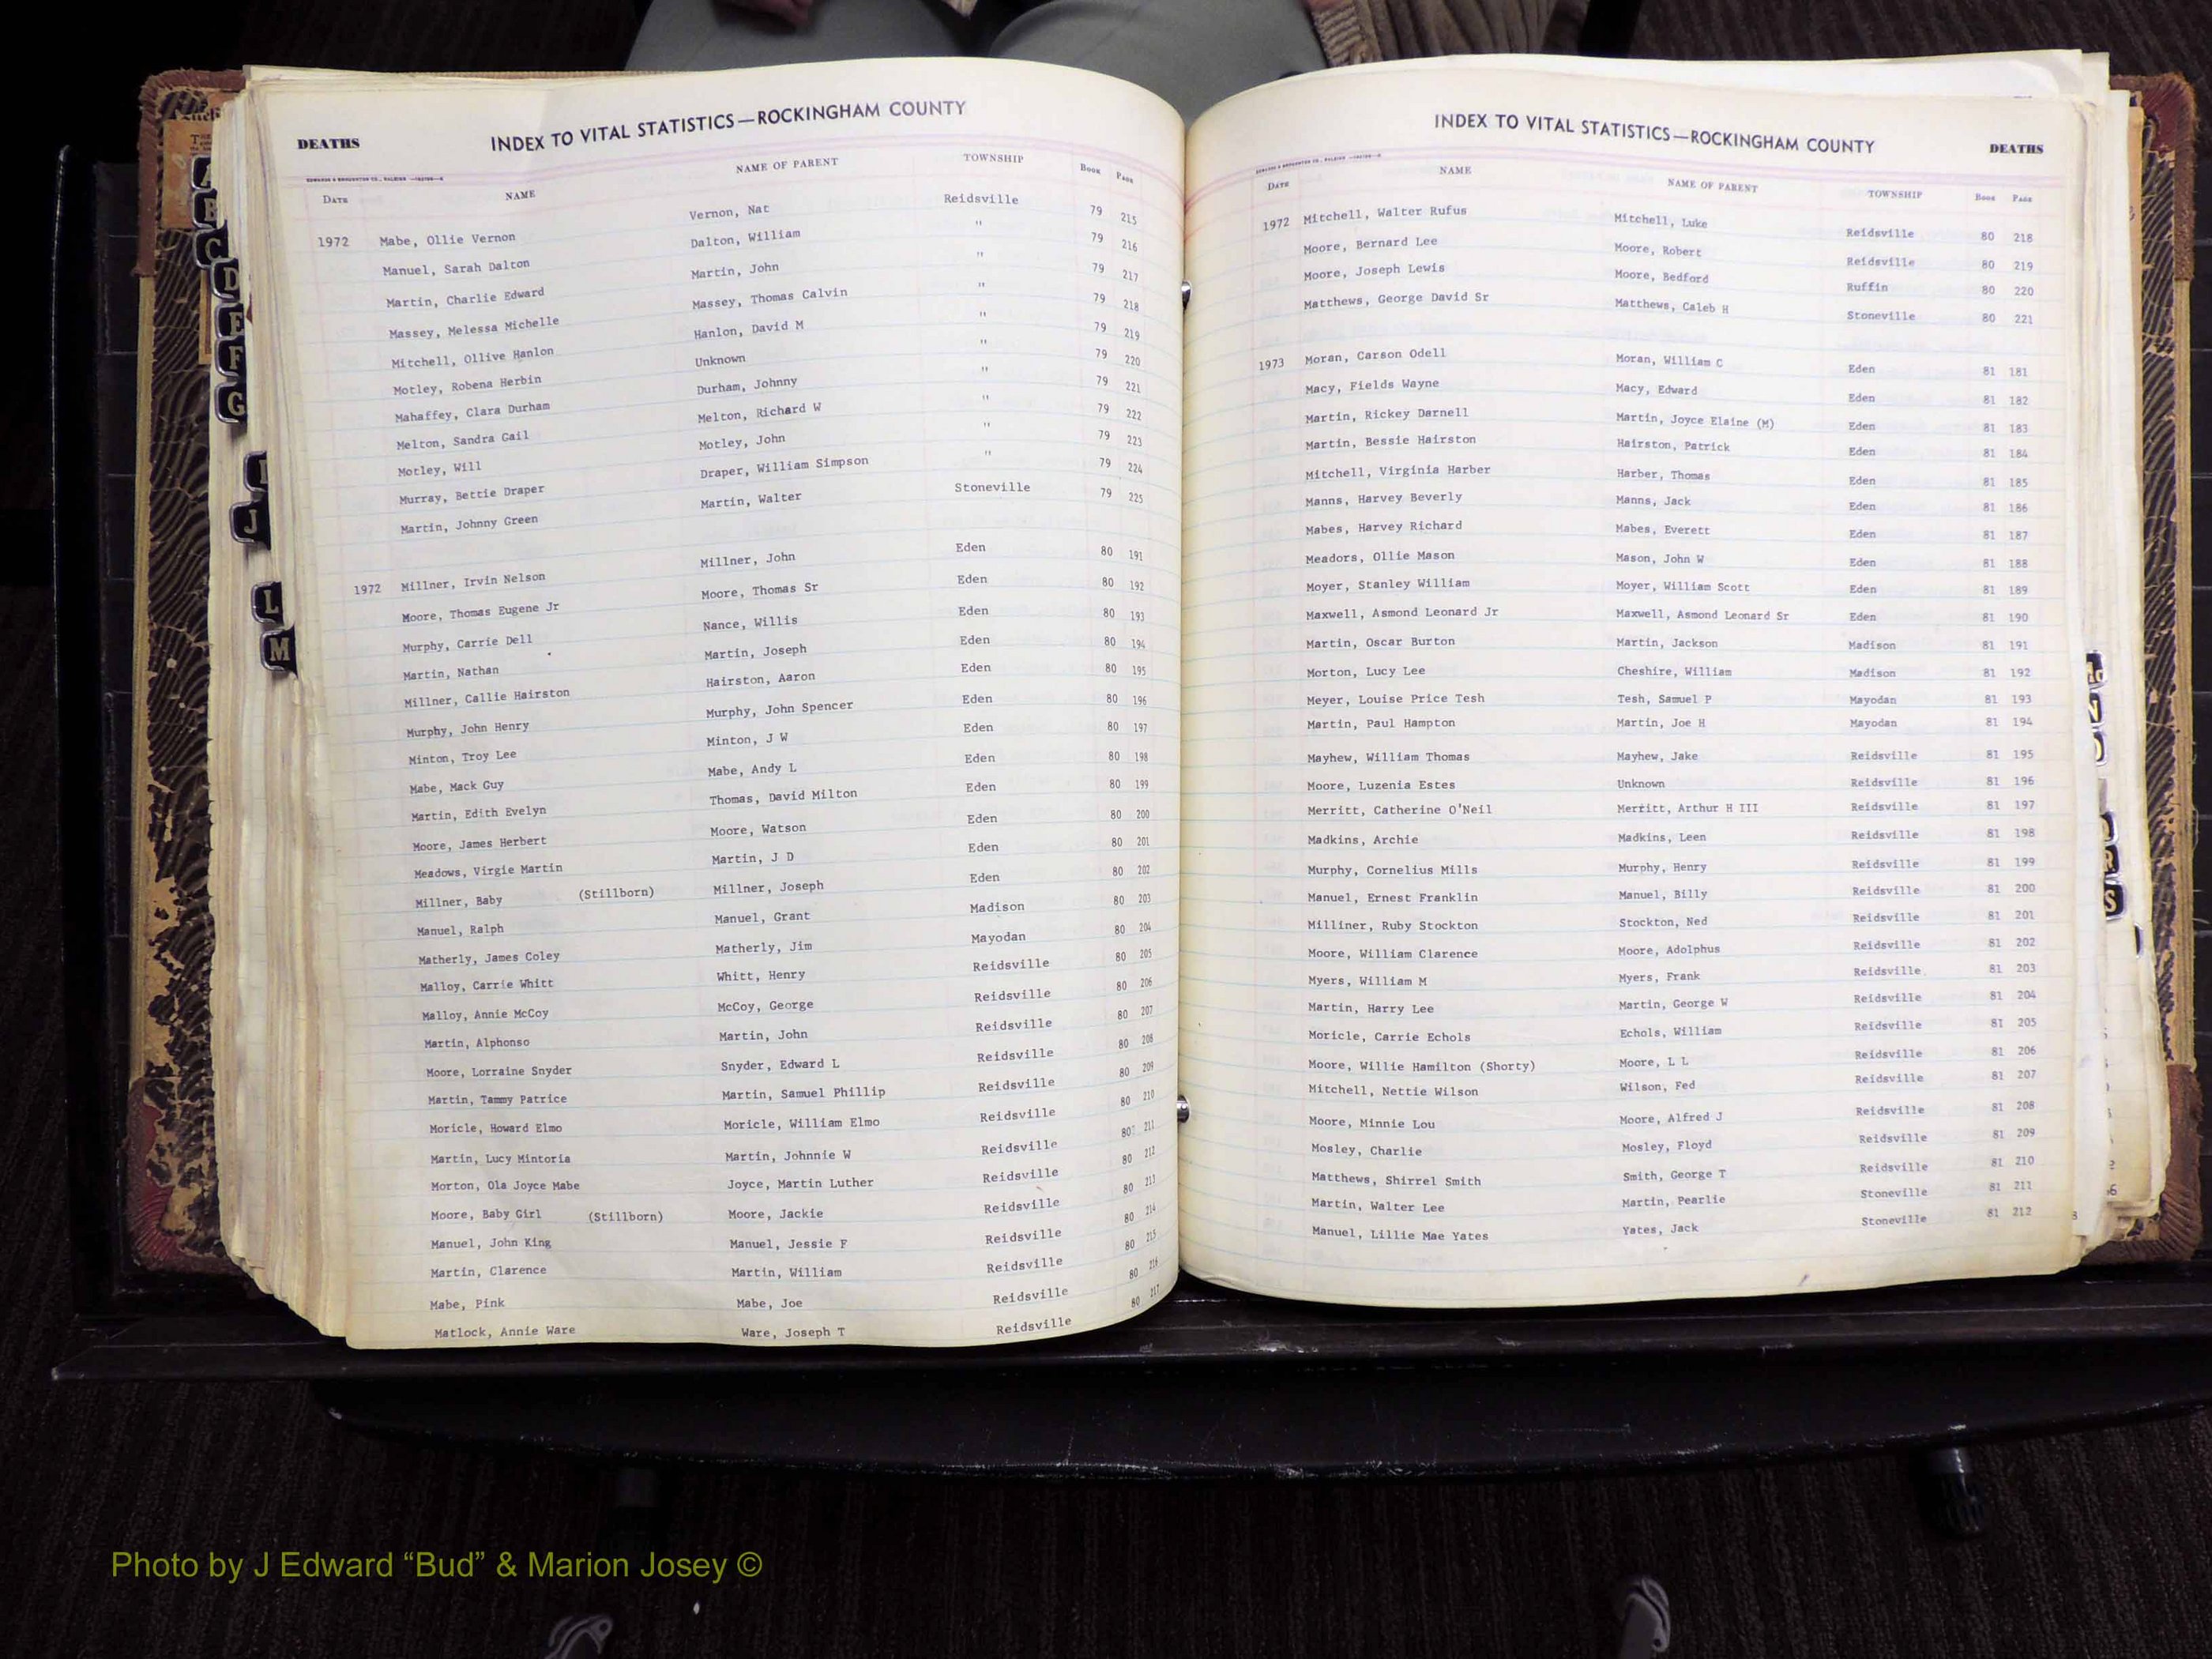 DEATHS
INDEX TO VITAL STATISTICS—ROCKINGHAM COUNTY
DATE NAME NAME OF PARENT TOWNSHIP BOOK PAGE
1972 Mabe, Ollie Vernon Vernon, Nat Reidsville 79 215
Manuel, Sarah Dalton Dalton, William " 79 216
Martin, Charlie Edward Martin, John " 79 217
Massey, Melessa Michelle Massey, Thomas Calvin " 79 218
Mitchell, Ollive Hanlon Hanlon, David M " 79 219
Motley, Robena Herbin Unknown " 79 220
Mahaffey, Clara Durham Durham, Johnny " 79 221
Melton, Sandra Gail Melton, Richard W " 79 222
Motley, Will Motley, John " 79 223
Murray, Bettie Draper Draper, William Simpson " 79 224
Martin, Johnny Green Martin, Walter Stoneville 79 225
1972 Millner, Irvin Nelson Millner, John Eden 80 191
Moore, Thomas Eugene Jr Moore, Thomas Sr Eden 80 192
Murphy, Carrie Dell Nance, Willis Eden 80 193
Martin, Nathan Martin, Joseph Eden 80 194
Millner, Callie Hairston Hairston, Aaron Eden 80 195
Murphy, John Henry Murphy, John Spencer Eden 80 196
Minton, Troy Lee Minton, J W Eden 80 197
Mabe, Mack Guy Mabe, Andy L Eden 80 198
Martin, Edith Evelyn Thomas, David Milton Eden 80 199
Moore, James Herbert Moore, Watson Eden 80 200
Meadows, Virgie Martin Martin, J D Eden 80 201
Millner, Baby (Stillborn) Millner, Joseph Eden 80 202
Manuel, Ralph Manuel, Grant Madison 80 203
Matherly, James Coley Matherly, Jim Mayodan 80 204
Malloy, Carrie Whitt Whitt, Henry Reidsville 80 205
Malloy, Annie McCoy McCoy, George Reidsville 80 206
Martin, Alphonso Martin, John Reidsville 80 207
Moore, Lorraine Snyder Snyder, Edward L Reidsville 80 208
Martin, Tammy Patrice Martin, Samuel Phillip Reidsville 80 209
Moricle, Howard Elmo Moricle, William Elmo Reidsville 80 210
Martin, Lucy Mintoria Martin, Johnnie W Reidsville 80 211
Morton, Ola Joyce Mabe Joyce, Martin Luther Reidsville 80 212
Moore, Baby Girl (Stillborn) Moore, Jackie Reidsville 80 213
Manuel, John King Manuel, Jessie F Reidsville 80 214
Martin, Clarence Martin, William Reidsville 80 215
Mabe, Pink Mabe, Joe Reidsville 80 216
Matlock, Annie Ware Ware, Joseph T Reidsville 80 217
INDEX TO VITAL STATISTICS—ROCKINGHAM COUNTY
DEATHS
DATE NAME NAME OF PARENT TOWNSHIP BOOK PAGE
1972 Mitchell, Walter Rufus Mitchell, Luke Reidsville 80 218
Moore, Bernard Lee Moore, Robert Reidsville 80 219
Moore, Joseph Lewis Moore, Bedford Ruffin 80 220
Matthews, George David Sr Matthews, Caleb H Stoneville 80 221
1973 Moran, Carson Odell Moran, William C Eden 81 181
Macy, Fields Wayne Macy, Edward Eden 81 182
Martin, Rickey Darnell Martin, Joyce Elaine (M) Eden 81 183
Martin, Bessie Hairston Hairston, Patrick Eden 81 184
Mitchell, Virginia Harber Harber, Thomas Eden 81 185
Manns, Harvey Beverly Manns, Jack Eden 81 186
Mabes, Harvey Richard Mabes, Everett Eden 81 187
Meadors, Ollie Mason Mason, John W Eden 81 188
Moyer, Stanley William Moyer, William Scott Eden 81 189
Maxwell, Asmond Leonard Jr Maxwell, Asmond Leonard Sr Eden 81 190
Martin, Oscar Burton Martin, Jackson Madison 81 191
Morton, Lucy Lee Cheshire, William Madison 81 192
Meyer, Louise Price Tesh Tesh, Samuel P Mayodan 81 193
Martin, Paul Hampton Martin, Joe H Mayodan 81 194
Mayhew, William Thomas Mayhew, Jake Reidsville 81 195
Moore, Luzenia Estes Unknown Reidsville 81 196
Merritt, Catherine O'Neil Merritt, Arthur H III Reidsville 81 197
Madkins, Archie Madkins, Leen Reidsville 81 198
Murphy, Cornelius Mills Murphy, Henry Reidsville 81 199
Manuel, Ernest Franklin Manuel, Billy Reidsville 81 200
Milliner, Ruby Stockton Stockton, Ned Reidsville 81 201
Moore, William Clarence Moore, Adolphus Reidsville 81 202
Myers, William M Myers, Frank Reidsville 81 203
Martin, Harry Lee Martin, George W Reidsville 81 204
Moricle, Carrie Echols Echols, William Reidsville 81 205
Moore, Willie Hamilton (Shorty) Moore, L L Reidsville 81 206
Mitchell, Nettie Wilson Wilson, Fed Reidsville 81 207
Moore, Minnie Lou Moore, Alfred J Reidsville 81 208
Mosley, Charlie Mosley, Floyd Reidsville 81 209
Matthews, Shirrel Smith Smith, George T Reidsville 81 210
Martin, Walter Lee Martin, Pearlie Stoneville 81 211
Manuel, Lillie Mae Yates Yates, Jack Stoneville 81 212
A
B
C
D
E
F
G
J
L
M
N
R
S
Photo by J Edward “Bud” & Marion Josey ©